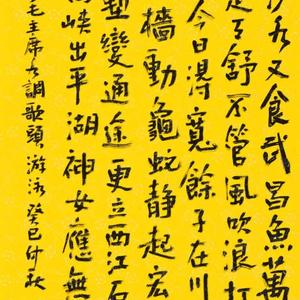 水又食武昌魚萬
天舒不管風吹浪打
今日得寬餘子在川
檣動龜蛇静起宏
塹變通途更立西江石
峽出平湖神女應無
毛主席水調歌頭游泳癸巳仲秋